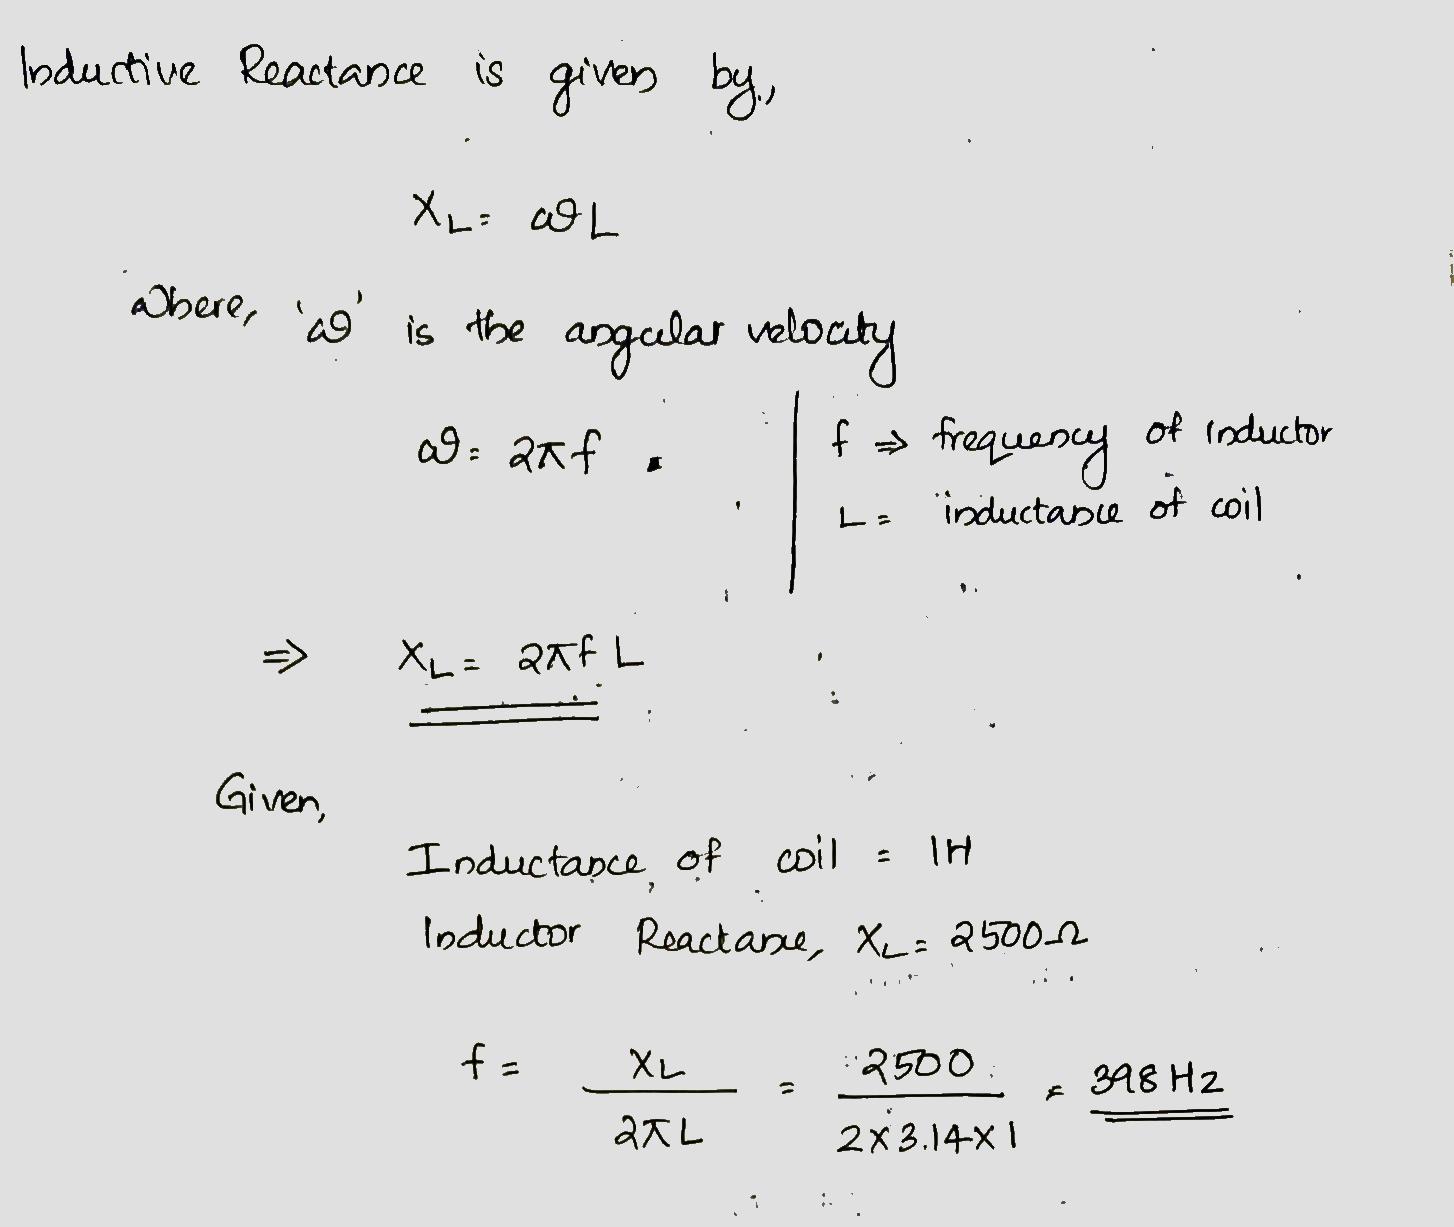 Inductive Reactance is given by.,
X_L = ωL
Where, 'ω' is the angular velocity
ω = 2πf
f ⇒ frequency of inductor
L = inductance of coil
⇒ X_L = 2πf L
Given,
Inductance of coil = 1H
Inductor Reactance, X_L = 2500Ω
f = X_L / 2πL = 2500 / 2×3.14×1 = 398 Hz